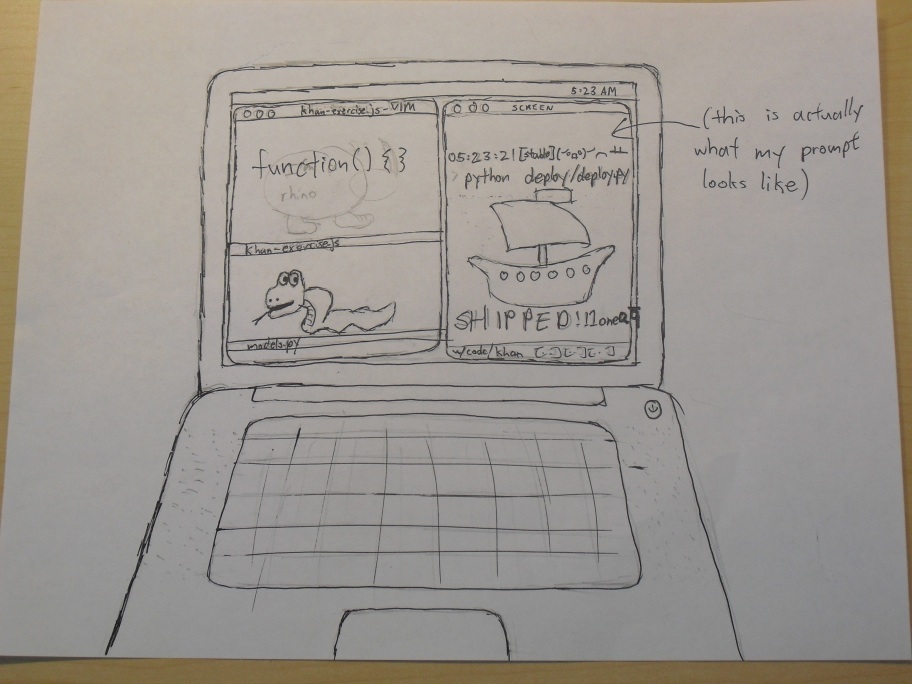 5:23 AM
khan-exercise.js - VIM
function() {}
rhino
khan-exercise.js
models.py
SCREEN
05:23:21 [stable]
python deploy/deploy.py
SHIPPED!11one
~/code/khan
(this is actually
what my prompt
looks like)